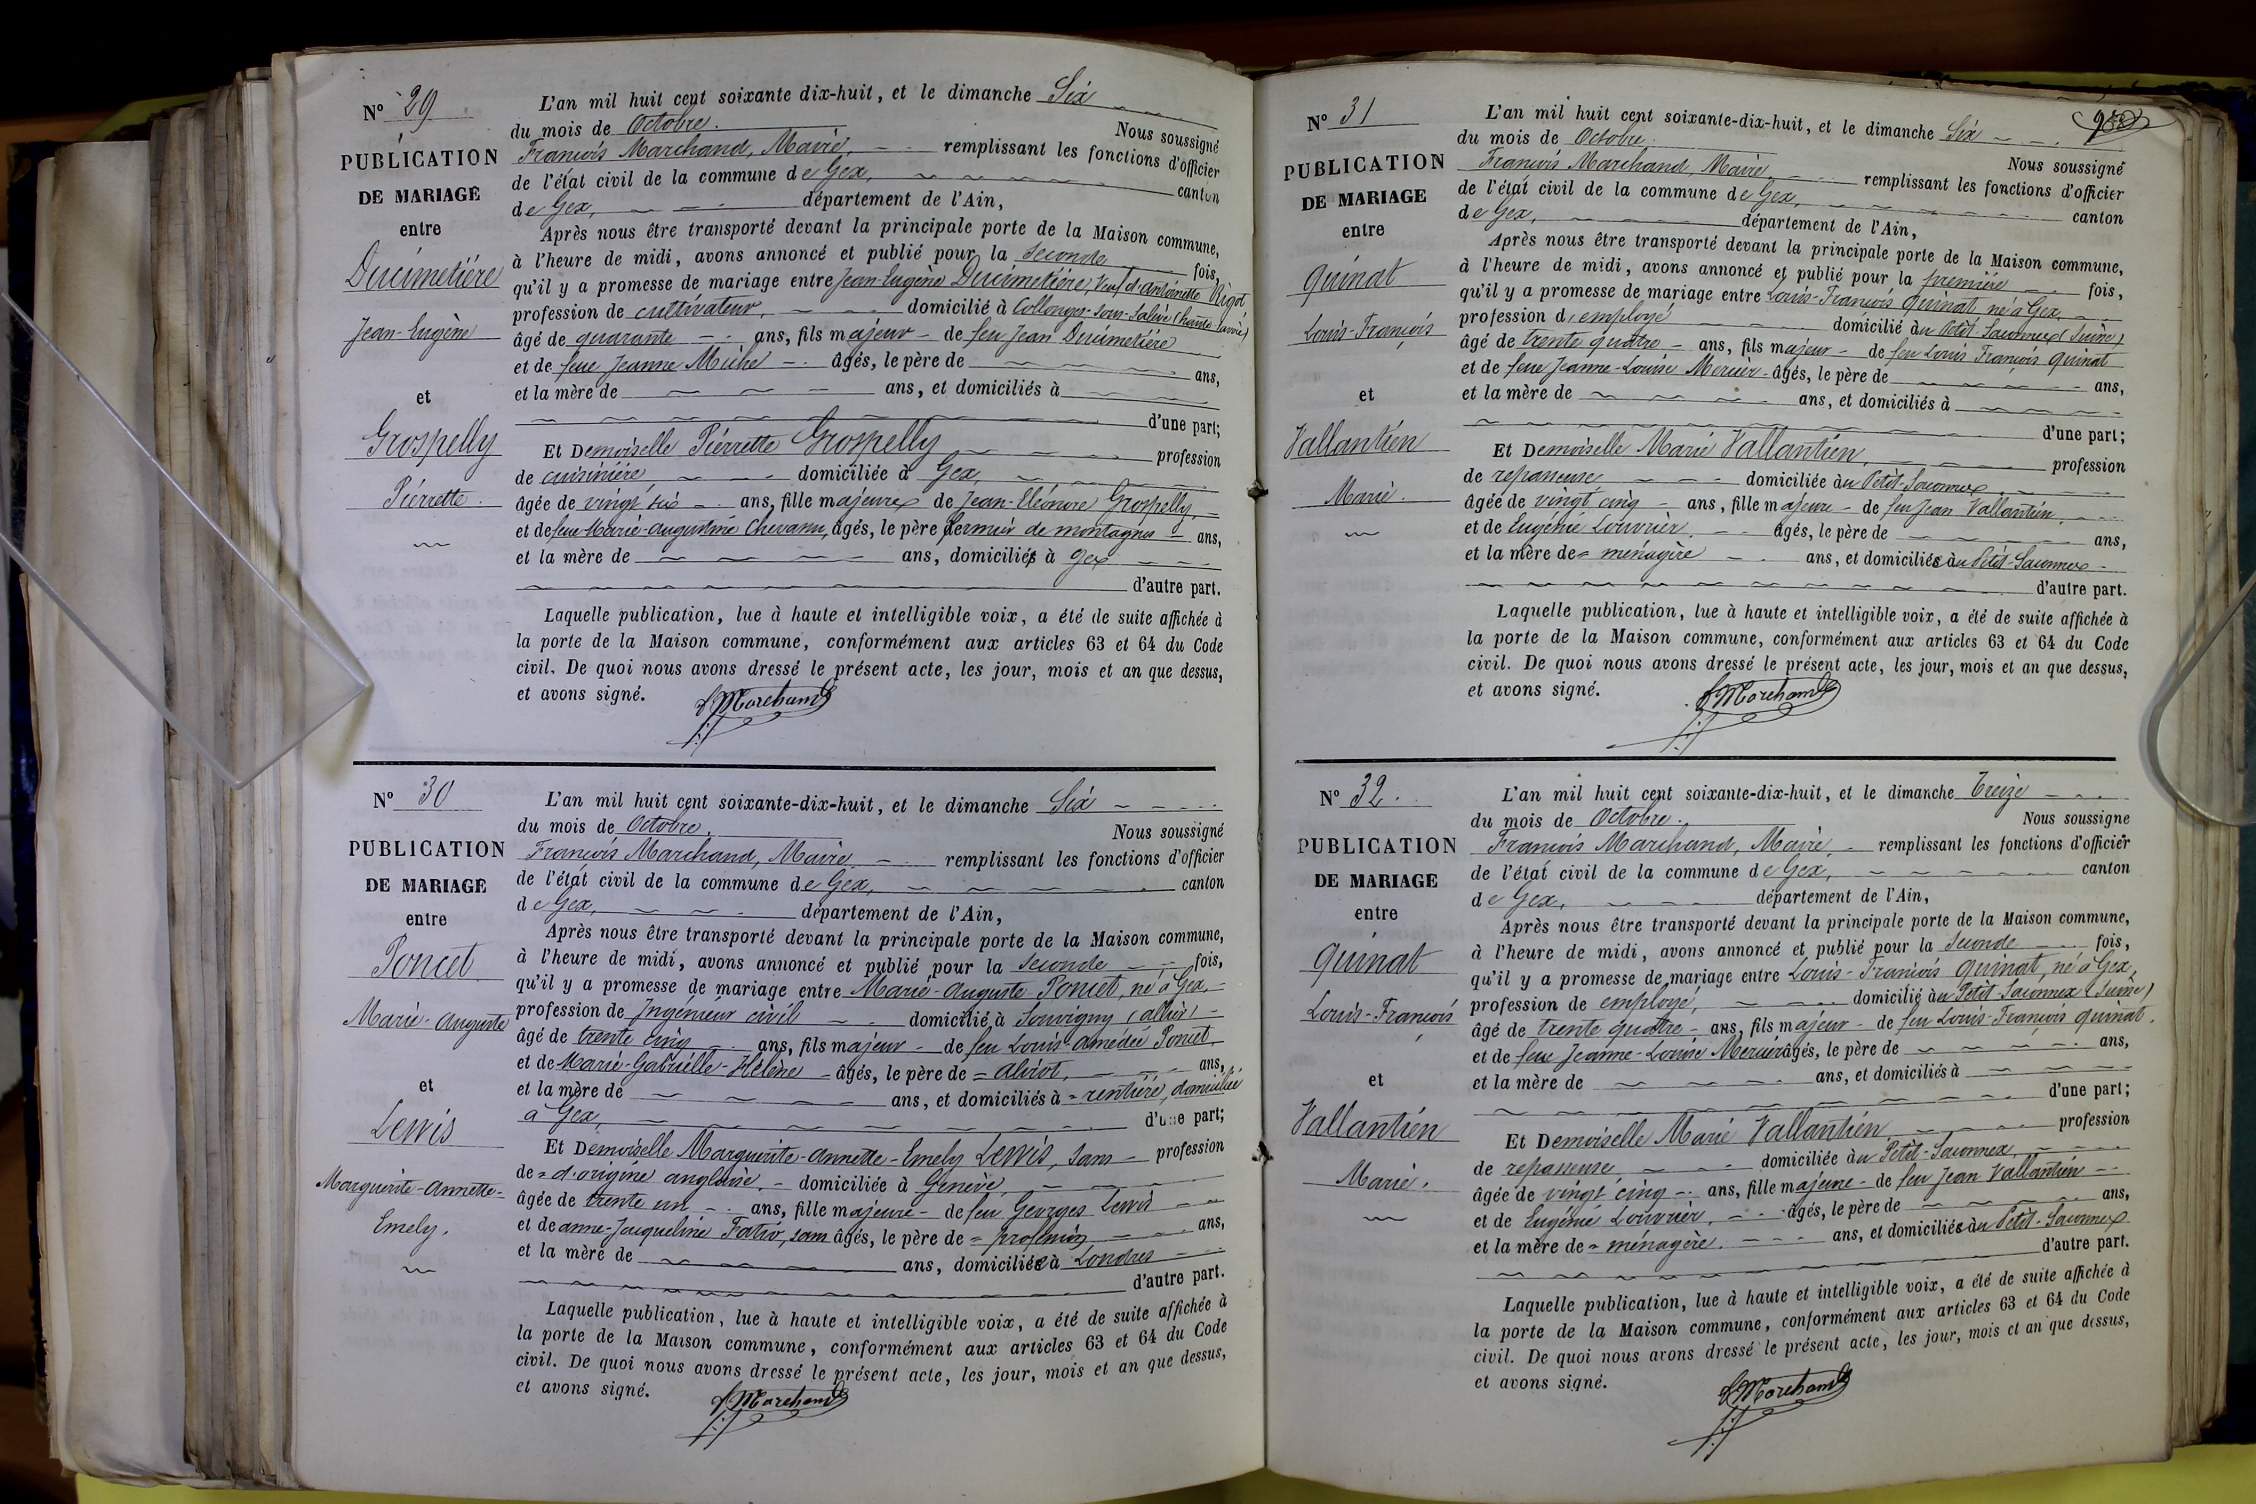 N° 29
PUBLICATION
DE MARIAGE
entre
Ducimetière
Jean-Eugène
et
Grospelly
Pierrette.
L'an mil huit cent soixante dix-huit, et le dimanche Six
du mois de Octobre. Nous soussigné
François Marchand, Maire, remplissant les fonctions d'officier
de l'état civil de la commune de Gex, canton
de Gex, département de l'Ain,
Après nous être transporté devant la principale porte de la Maison commune,
à l'heure de midi, avons annoncé et publié pour la seconde fois,
qu'il y a promesse de mariage entre Jean-Eugène Ducimetière, veuf d'Antoinette Rigot
profession de cultivateur, domicilié à Collonges-sous-Salève (haute-Savoie)
âgé de quarante ans, fils majeur de feu Jean Ducimetière
et de feue Jeanne Miche âgés, le père de ans,
et la mère de ans, et domiciliés à
d'une part;
Et Demoiselle Pierrette Grospelly profession
de cuisinière domiciliée à Gex,
âgée de vingt six ans, fille majeure de Jean-Eléonore Grospelly,
et de feue Marie-Augustine Chevassu, âgés, le père fermier de montagnes ans,
et la mère de ans, domiciliés à Gex
d'autre part.
Laquelle publication, lue à haute et intelligible voix, a été de suite affichée à
la porte de la Maison commune, conformément aux articles 63 et 64 du Code
civil. De quoi nous avons dressé le présent acte, les jour, mois et an que dessus,
et avons signé. f. Marchand
N° 30
PUBLICATION
DE MARIAGE
entre
Poncet
Marie-Auguste
et
Lewis
Marguerite-Annette-
Emely.
L'an mil huit cent soixante-dix-huit, et le dimanche Six
du mois de Octobre. Nous soussigné
François Marchand, Maire remplissant les fonctions d'officier
de l'état civil de la commune de Gex, canton
de Gex, département de l'Ain,
Après nous être transporté devant la principale porte de la Maison commune,
à l'heure de midi, avons annoncé et publié pour la seconde fois,
qu'il y a promesse de mariage entre Marie-Auguste Poncet, né à Gex,
profession de Ingénieur civil domicilié à Souvigny (allier)
âgé de trente cinq ans, fils majeur de feu Louis-Amédée Poncet,
et de Marie-Gabrielle-Hélène âgés, le père de = ans,
et la mère de ans, et domiciliés à = rentière, domiciliée
à Gex, d'une part;
Et Demoiselle Marguerite-Annette-Emely Lewis, sans profession
de = d'origine anglaise, domiciliée à Genève,
âgée de trente un ans, fille majeure de feu Georges Lewis
et de anne-Jacqueline Fatio, sans âgés, le père de = profession ans,
et la mère de ans, domiciliée à Londres
d'autre part.
Laquelle publication, lue à haute et intelligible voix, a été de suite affichée à
la porte de la Maison commune, conformément aux articles 63 et 64 du Code
civil. De quoi nous avons dressé le présent acte, les jour, mois et an que dessus,
et avons signé. f. Marchand
N° 31
PUBLICATION
DE MARIAGE
entre
Quinat
Louis-François
et
Vallantien
Marie.
L'an mil huit cent soixante-dix-huit, et le dimanche Six
du mois de Octobre. Nous soussigné
François Marchand, Maire, remplissant les fonctions d'officier
de l'état civil de la commune de Gex, canton
de Gex, département de l'Ain,
Après nous être transporté devant la principale porte de la Maison commune,
à l'heure de midi, avons annoncé et publié pour la première fois,
qu'il y a promesse de mariage entre Louis-François Quinat, né à Gex,
profession d'employé domicilié au Petit-Saconnex (Suisse)
âgé de trente quatre ans, fils majeur de feu Louis François Quinat
et de feue Jeanne-Louise Mercier âgés, le père de ans,
et la mère de ans, et domiciliés à
d'une part;
Et Demoiselle Marie Vallantien, profession
de repasseuse domiciliée au Petit-Saconnex
âgée de vingt cinq ans, fille majeure de feu Jean Vallantien,
et de Eugénie Louvrier, âgés, le père de ans,
et la mère de = ménagère ans, et domiciliée au Petit-Saconnex
d'autre part.
Laquelle publication, lue à haute et intelligible voix, a été de suite affichée à
la porte de la Maison commune, conformément aux articles 63 et 64 du Code
civil. De quoi nous avons dressé le présent acte, les jour, mois et an que dessus,
et avons signé. f. Marchand
N° 32.
PUBLICATION
DE MARIAGE
entre
Quinat
Louis-François
et
Vallantien
Marie.
L'an mil huit cent soixante-dix-huit, et le dimanche Treize
du mois de Octobre. Nous soussigné
François Marchand, Maire, remplissant les fonctions d'officier
de l'état civil de la commune de Gex, canton
de Gex, département de l'Ain,
Après nous être transporté devant la principale porte de la Maison commune,
à l'heure de midi, avons annoncé et publié pour la seconde fois,
qu'il y a promesse de mariage entre Louis-François Quinat, né à Gex,
profession de employé, domicilié au Petit-Saconnex (Suisse)
âgé de trente quatre ans, fils majeur de feu Louis-François Quinat.
et de feue Jeanne-Louise Mercier âgés, le père de ans,
et la mère de ans, et domiciliés à
d'une part;
Et Demoiselle Marie Vallantien profession
de repasseuse domiciliée au Petit-Saconnex
âgée de vingt cinq ans, fille majeure de feu Jean Vallantien
et de Eugénie Louvrier, âgés, le père de ans,
et la mère de = ménagère. ans, et domiciliée au Petit-Saconnex
d'autre part.
Laquelle publication, lue à haute et intelligible voix, a été de suite affichée à
la porte de la Maison commune, conformément aux articles 63 et 64 du Code
civil. De quoi nous avons dressé le présent acte, les jour, mois et an que dessus,
et avons signé. f. Marchand